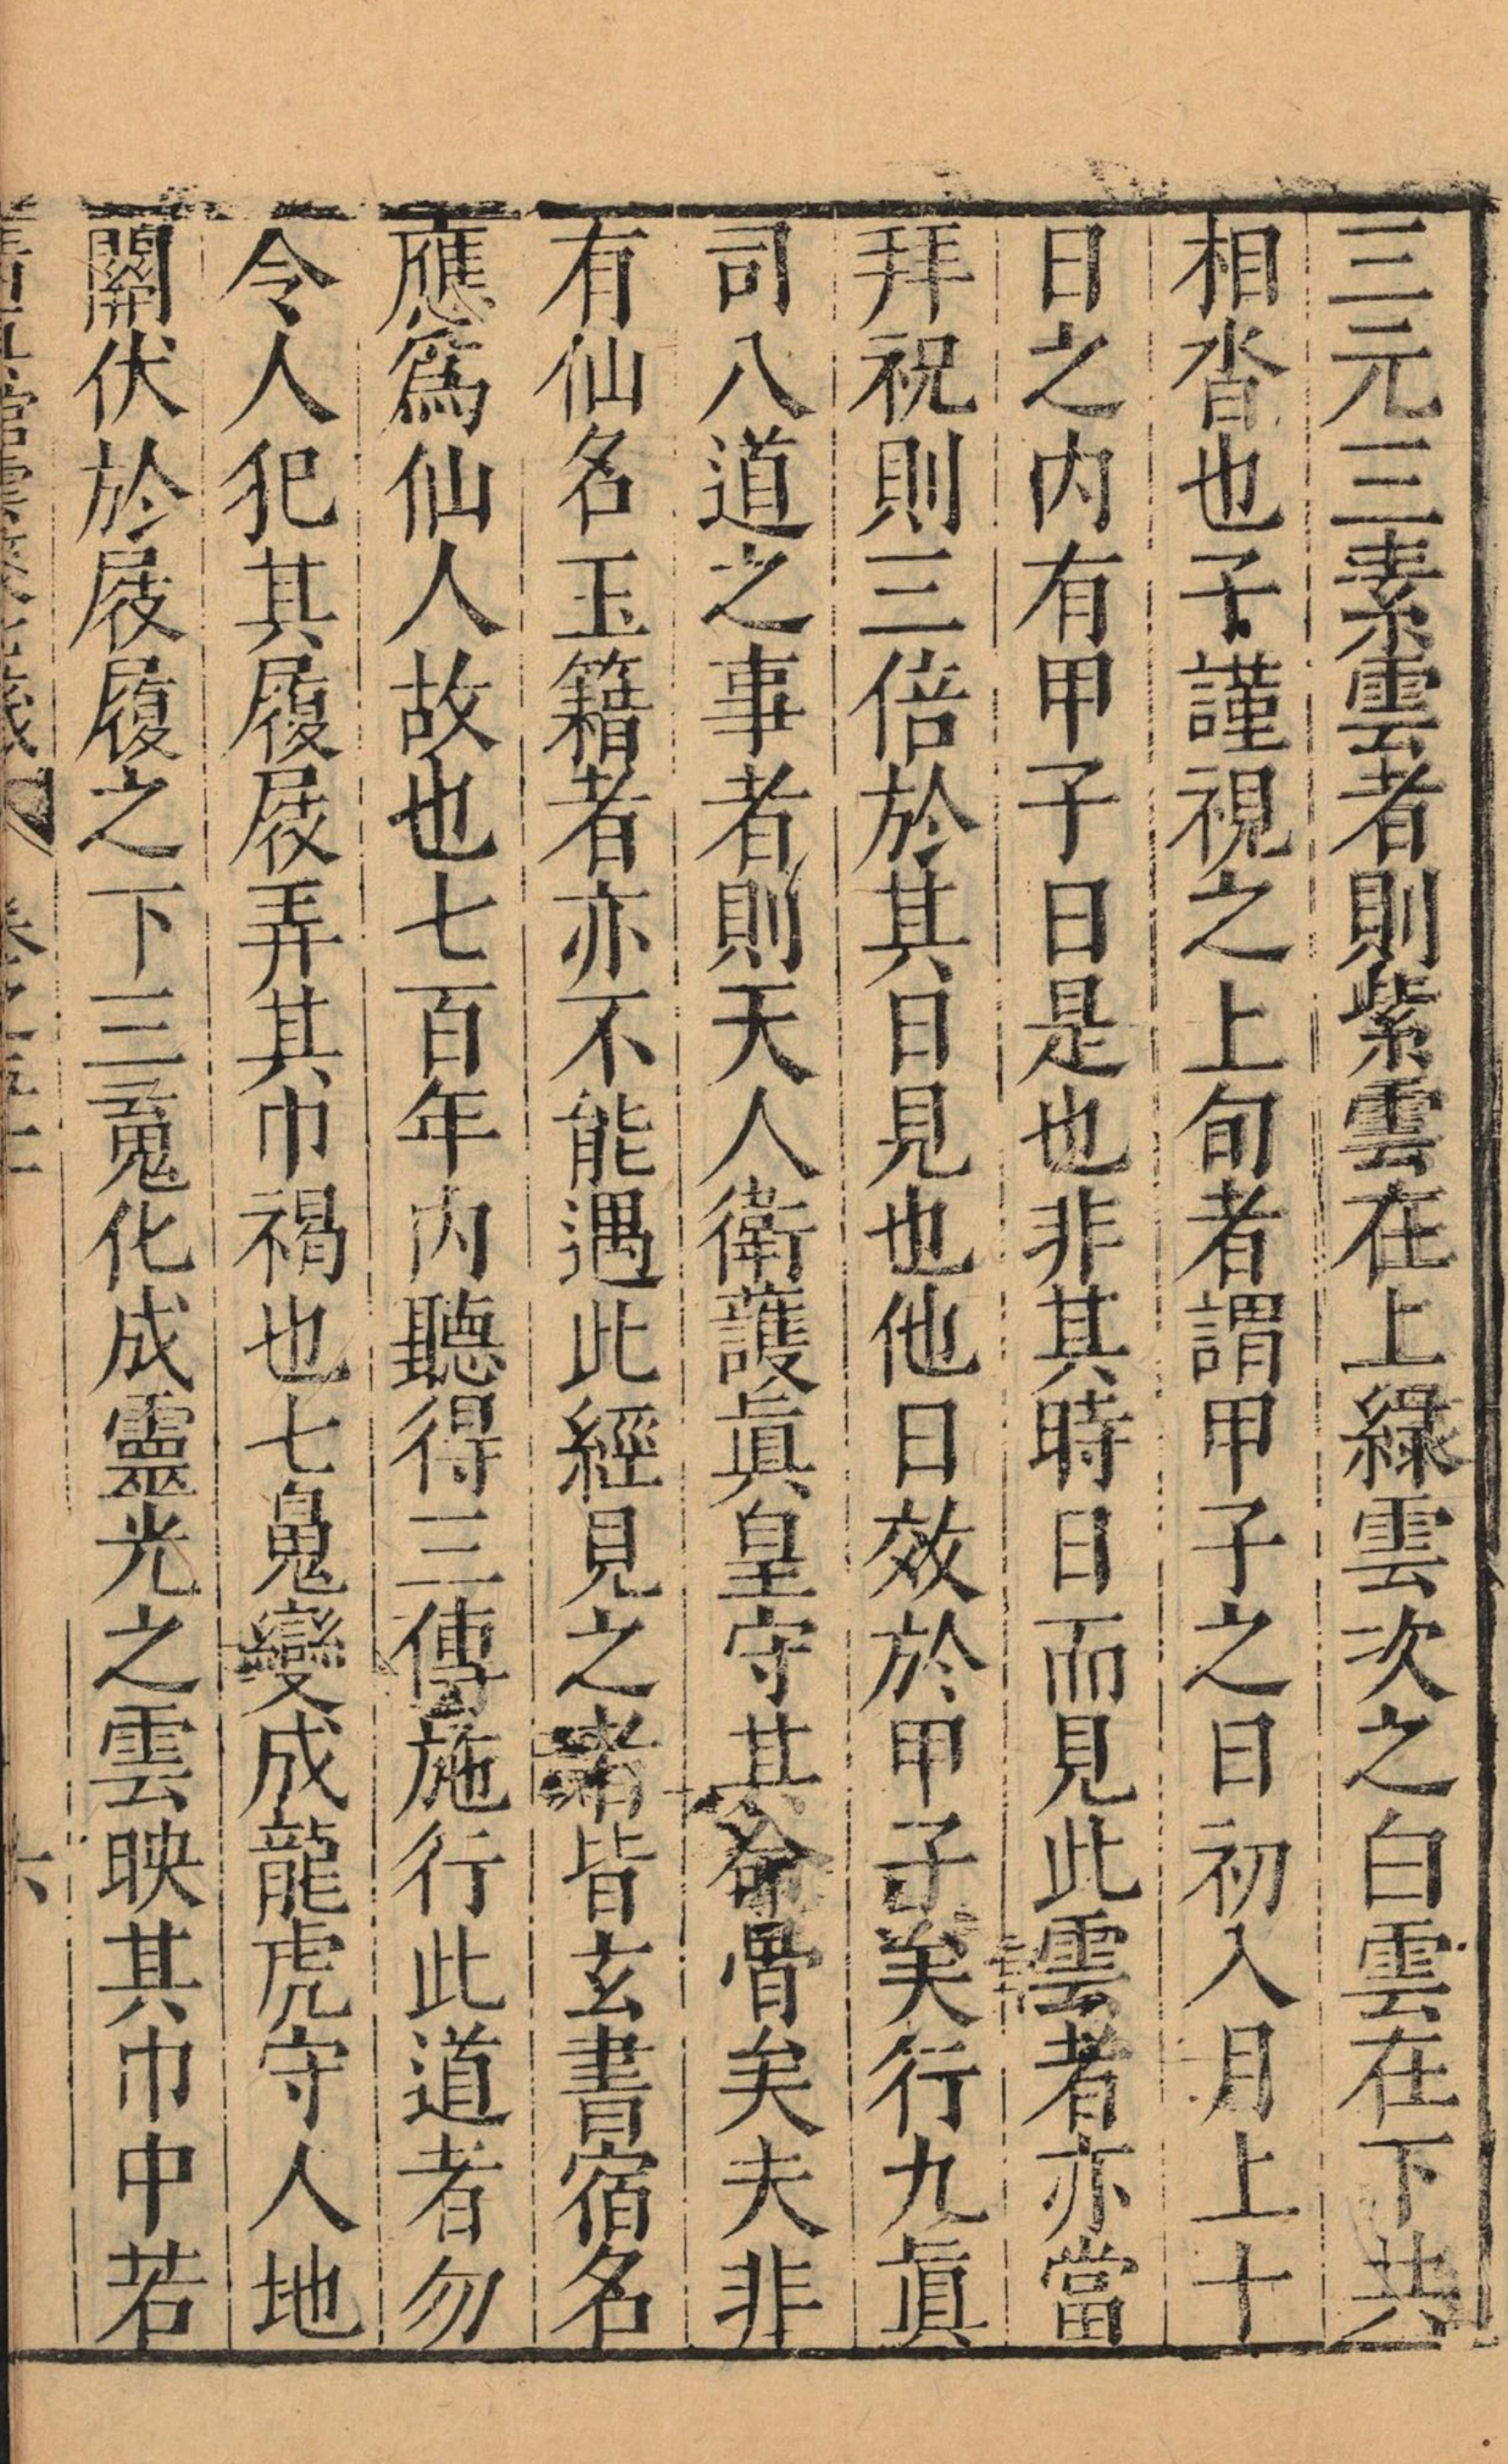 三元三素雲者則紫雲在上綠雲次之白雲在下共
相沓也子謹視之上旬者謂甲子之日初入月上十
日之内有甲子日是也非其時日而見此雲者亦當
拜祝則三倍於其日見也他日效於甲子矣行九眞
司八道之事者則天人衛護眞皇守其命骨矣夫非
有仙名玉籍者亦不能遇此經見之者皆玄書宿名
應爲仙人故也七百年内聽得三傳施行此道者勿
令人犯其履屐弄其巾褐也七魄變成龍虎守人地
關伏於屐履之下三䰟化成靈光之雲映其巾中若
六